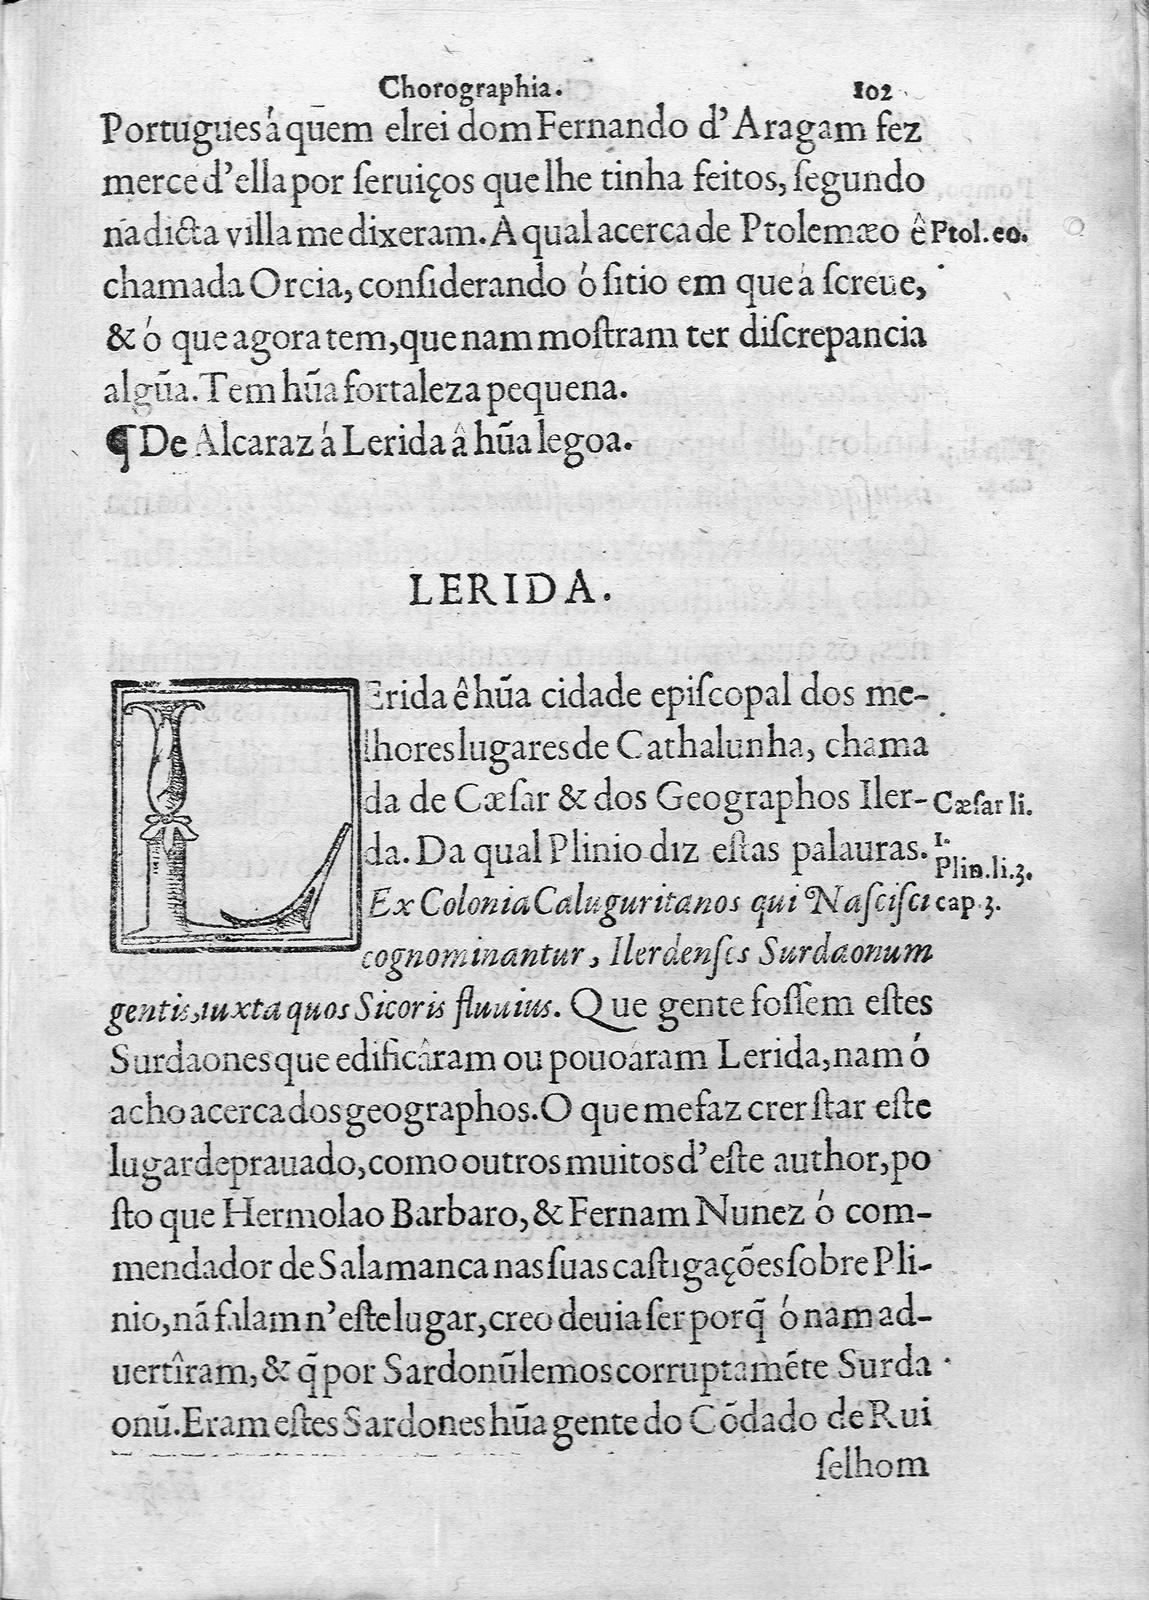 Chorographia. 102
Portugues á quẽm elrei dom Fernando d'Aragam fez
merce d'ella por ſeruiços que lhe tinha feitos, ſegundo
na dicta villa me dixeram. A qual acerca de Ptolemæo ê
Ptol. eo.
chamada Orcia, conſiderando ó ſitio em que á ſcreue,
& ó que agora tem, que nam moſtram ter diſcrepancia
algũa. Tem hũa fortaleza pequena.
¶ De Alcaraz á Lerida â hũa legoa.
LERIDA.
LErida ê hũa cidade epiſcopal dos me-
lhores lugares de Cathalunha, chama
da de Cæſar & dos Geographos Iler-
Cæſar li.
1.
da. Da qual Plinio diz eſtas palauras.
Plin. li. 3.
Ex Colonia Caluguritanos qui Naſciſci
cap. 3.
cognominantur, Ilerdenſes Surdaonum
gentis, iuxta quos Sicoris fluuius. Que gente foſſem eſtes
Surdaones que edificâram ou pouoáram Lerida, nam ó
acho acerca dos geographos. O que me faz crer ſtar eſte
lugar deprauado, como outros muitos d'eſte author, po
ſto que Hermolao Barbaro, & Fernam Nunez ó com-
mendador de Salamanca nas ſuas caſtigações ſobre Pli-
nio, nã falam n'eſte lugar, creo deuia ſer porq̃ ó nam ad-
uertîram, & q̃ por Sardonũ lemos corruptamẽte Surda
onũ. Eram eſtes Sardones hũa gente do Cõdado de Rui
ſelhom